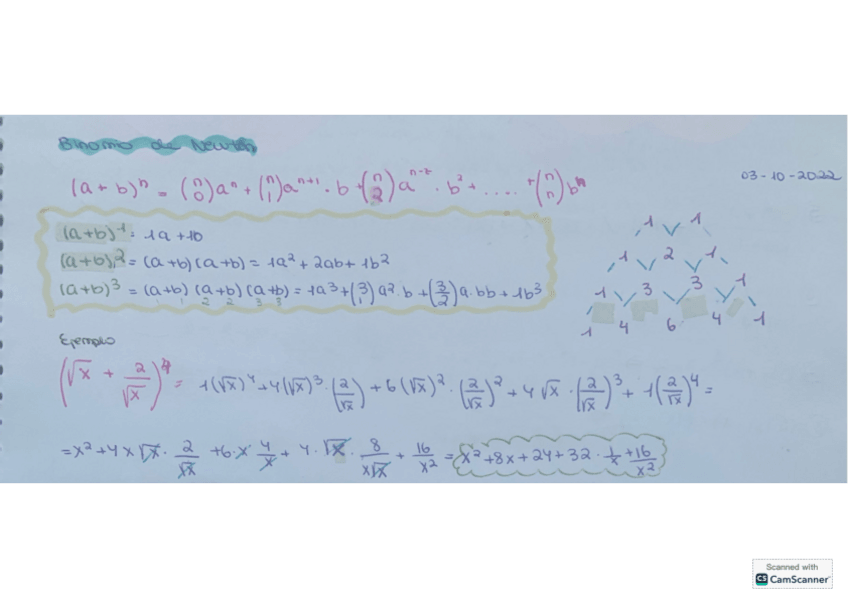 Binomo de Newton
03-10-2022
(a + b)ⁿ = (n 0) aⁿ + (n 1) aⁿ⁺¹ · b + (n 2) aⁿ⁻² · b² + ..... + (n n) bⁿ
(a+b)¹ = 1a + 1b
(a+b)² = (a+b) (a+b) = 1a² + 2ab + 1b²
(a+b)³ = (a+b) (a+b) (a+b) = 1a³ + (3 1) a² · b + (3 2) a · bb + 1b³
1 1 2 2 3 3
1 1
1 2 1
1 3 3 1
1 4 6 4 1
Ejemplo
(√x + 2/√x)⁴ = 1(√x)⁴ + 4(√x)³ · (2/√x) + 6(√x)² · (2/√x)² + 4√x · (2/√x)³ + 1(2/√x)⁴ =
= x² + 4x√x · 2/√x + 6 · x · 4/x + 4 · √x · 8/x√x + 16/x² = x² + 8x + 24 + 32 · 1/x + 16/x²
Scanned with
CS CamScanner